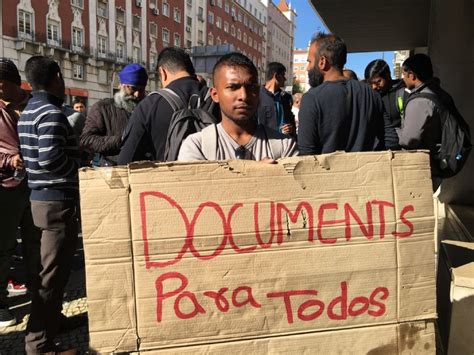 DOCUMENTS
Para Todos